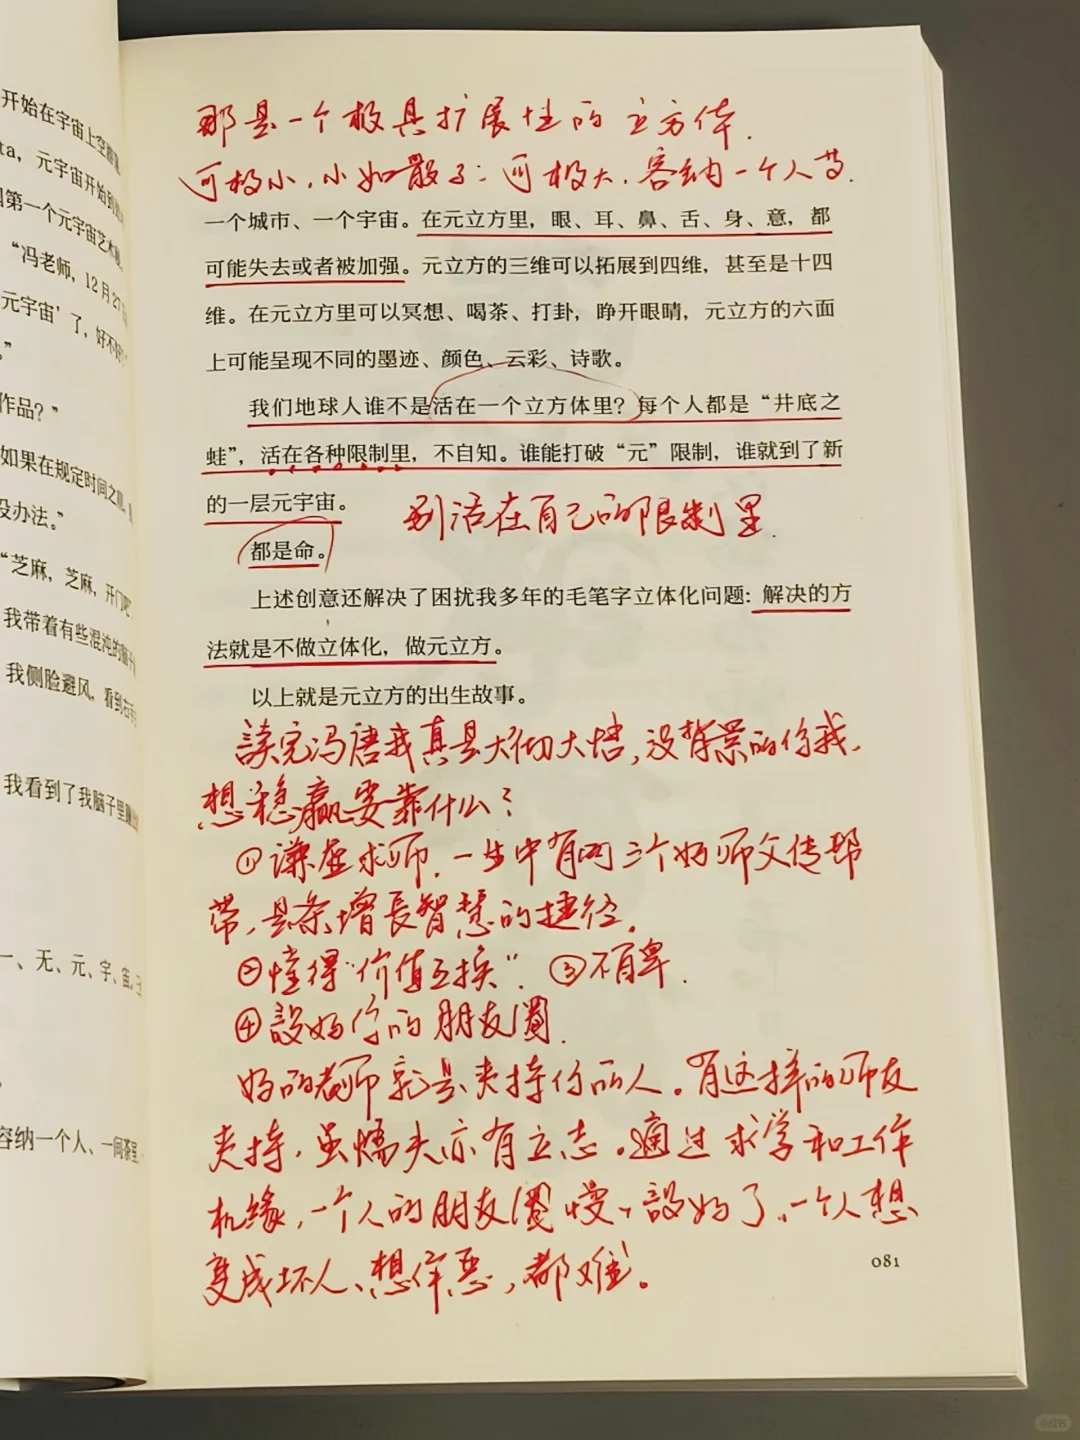 开始在宇宙上空
ta，元宇宙开始到
第一个元宇宙艺术
“冯老师，12月27
元宇宙’了，好不好
。”
作品？”
如果在规定时间之
没办法。”
“芝麻，芝麻，开门
我带着有些混沌的脑子
我侧脸避风，看到
我看到了我脑子里
一、无、元、宇、宙、
容纳一个人、一间茶室
那是一个极具扩展性的立方体.
可极小，小如骰子；可极大，容纳一个人、
一个城市、一个宇宙。在元立方里，眼、耳、鼻、舌、身、意，都
可能失去或者被加强。元立方的三维可以拓展到四维，甚至是十四
维。在元立方里可以冥想、喝茶、打卦，睁开眼睛，元立方的六面
上可能呈现不同的墨迹、颜色、云彩、诗歌。
我们地球人谁不是活在一个立方体里？每个人都是“井底之
蛙”，活在各种限制里，不自知。谁能打破“元”限制，谁就到了新
的一层元宇宙。
别活在自己的限制里.
都是命。
上述创意还解决了困扰我多年的毛笔字立体化问题：解决的方
法就是不做立体化，做元立方。
以上就是元立方的出生故事。
读完冯唐我真是大彻大悟，没背景的你我，
想稳赢要靠什么？
①谦虚求师，一生中有两三个好师父传帮
带，是条增長智慧的捷径。
②懂得“价值互换”. ③不自卑.
④設好你的朋友圈.
好的老师就是夹持你的人。有这样的师友
夹持，虽懦夫亦有立志。通过求学和工作
机缘，一个人的朋友圈慢慢設好了，一个人想
变成坏人、想作恶，都难！。
081
小红书